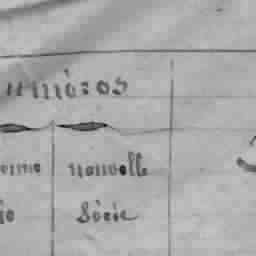 uméros
enne nouvelle
ie Série